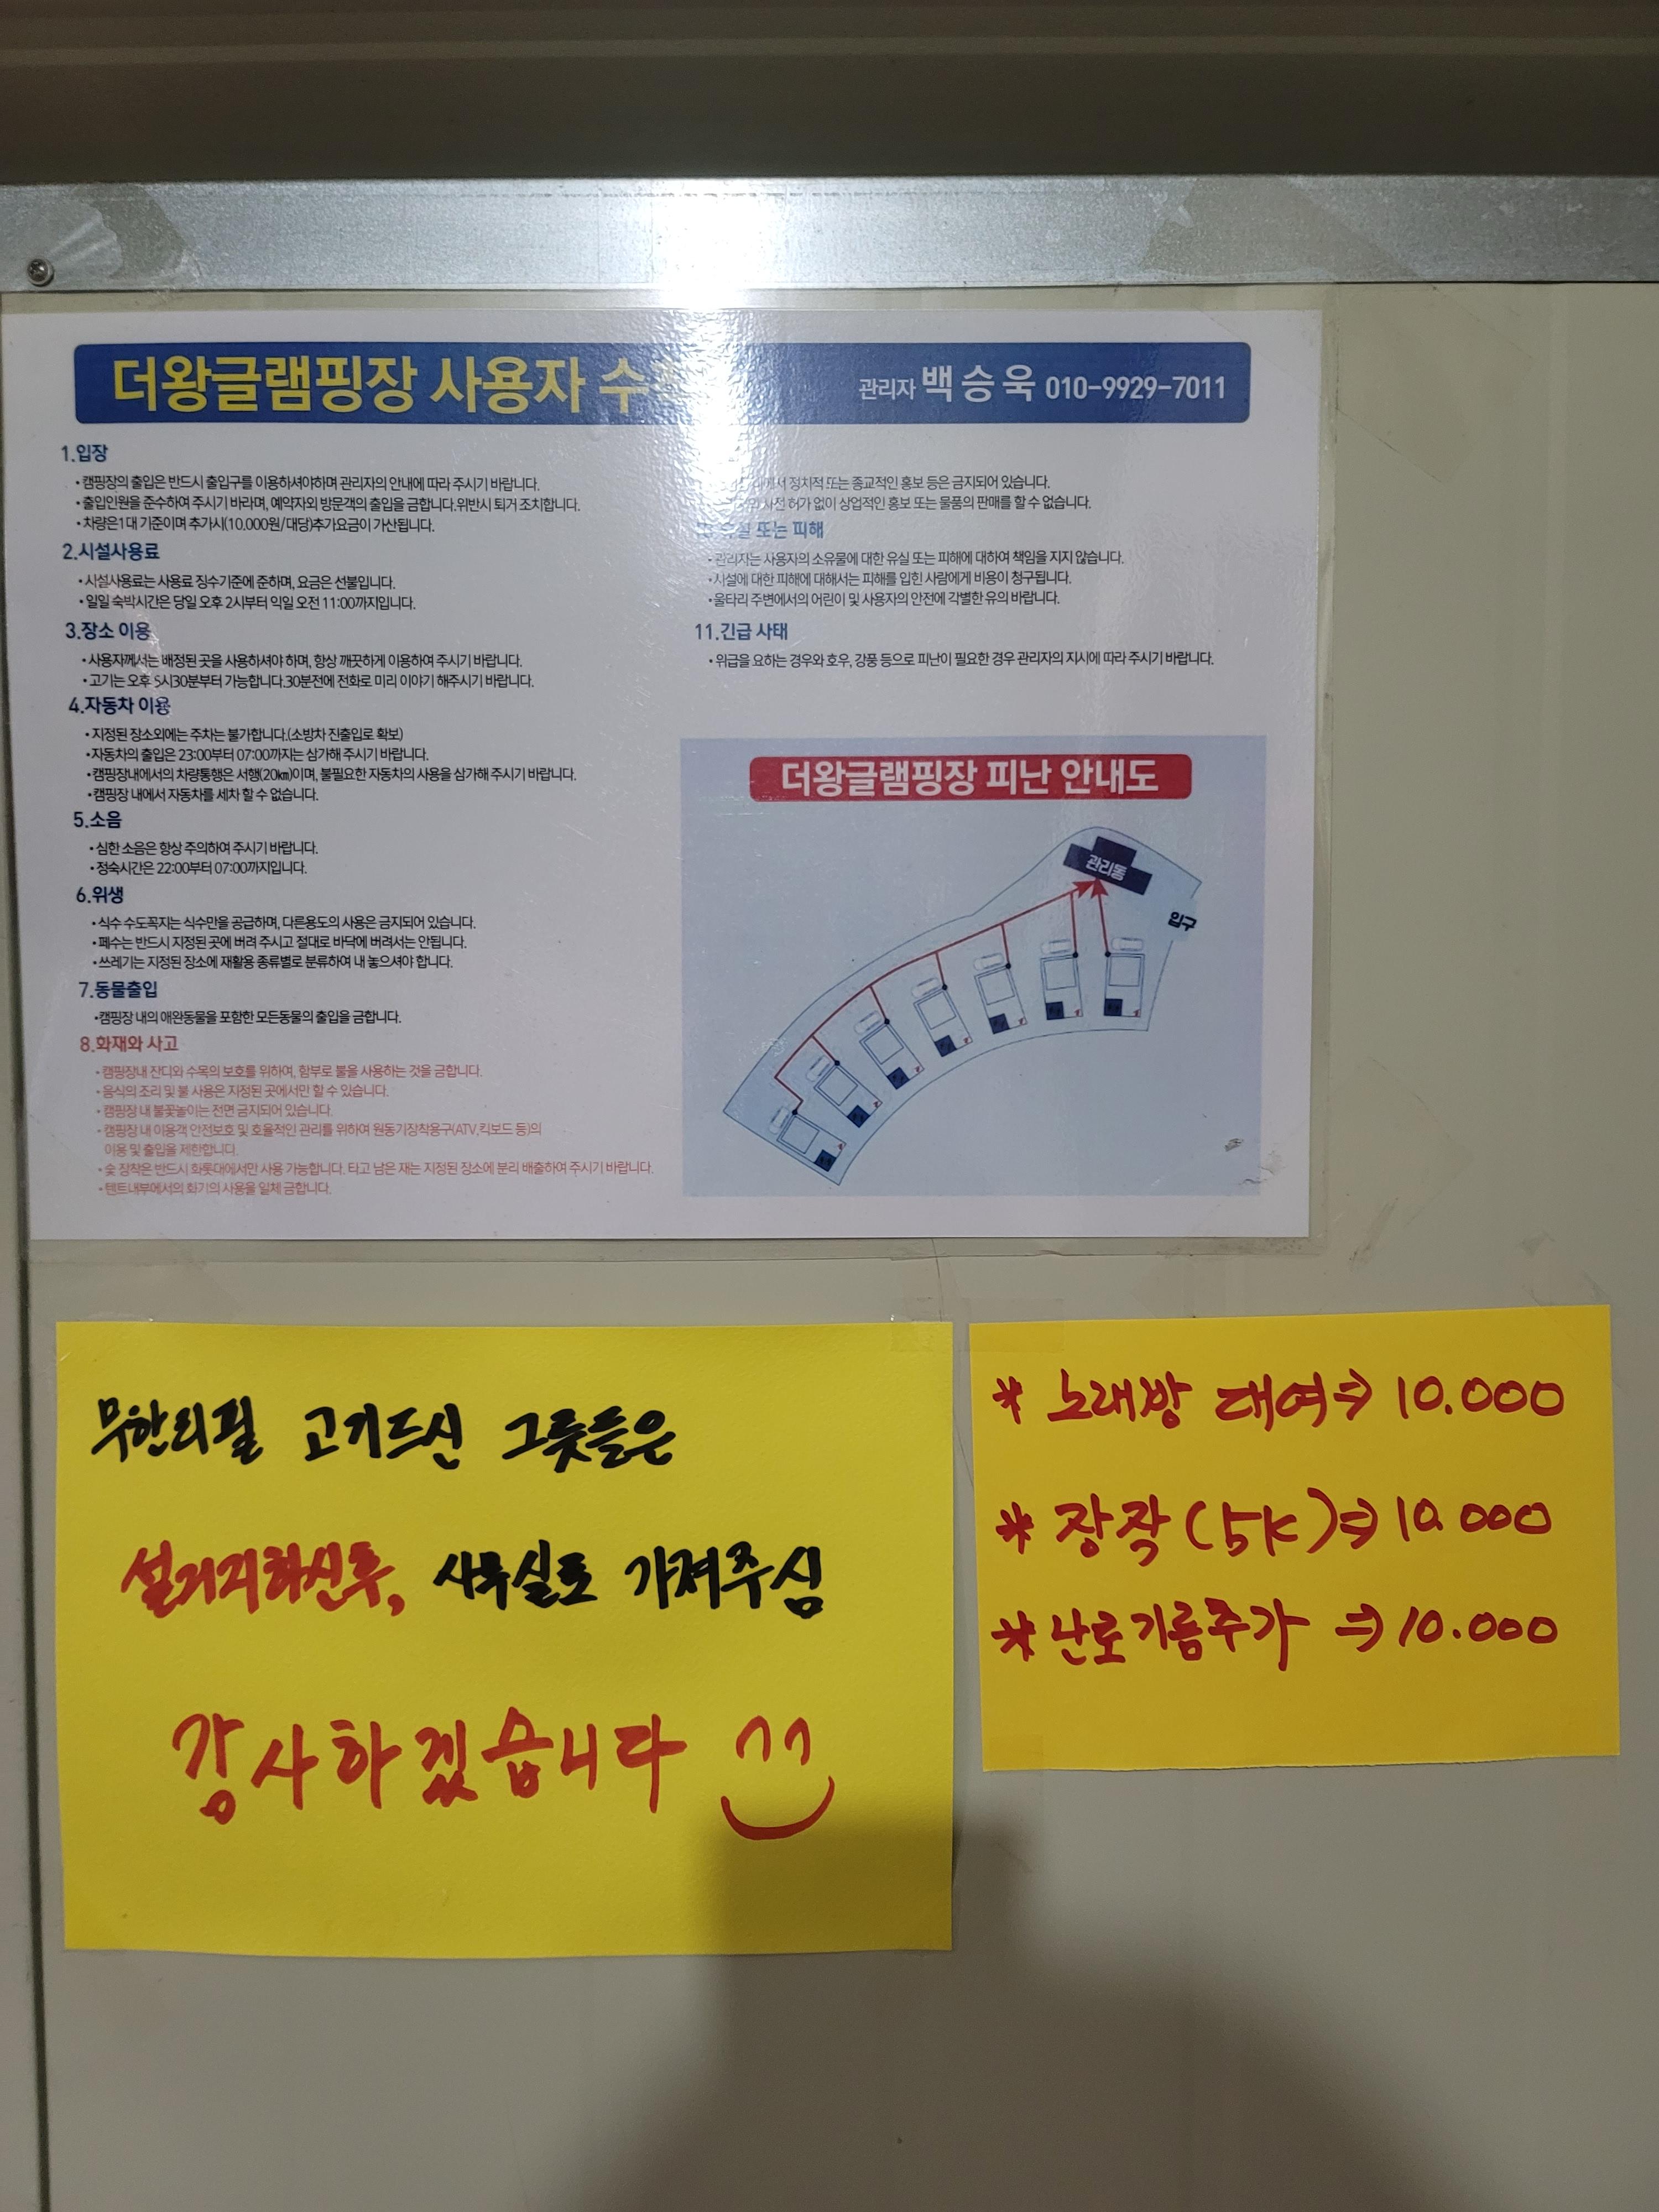 더왕글램핑장 사용자 수
관리자 백승욱 010-9929-7011
1.입장
• 캠핑장의 출입은 반드시 출입구를 이용하셔야하며 관리자의 안내에 따라 주시기 바랍니다.
• 출입인원을 준수하여 주시기 바라며, 예약자외 방문객의 출입을 금합니다.위반시 퇴거 조치합니다.
• 차량은1대 기준이며 추가시(10,000원/대당)추가요금이 가산됩니다.
2.시설사용료
• 시설사용료는 사용료 징수기준에 준하며, 요금은 선불입니다.
• 일일 숙박시간은 당일 오후 2시부터 익일 오전 11:00까지입니다.
3.장소 이용
• 사용자께서는 배정된 곳을 사용하셔야 하며, 항상 깨끗하게 이용하여 주시기 바랍니다.
• 고기는 오후 5시30분부터 가능합니다.30분전에 전화로 미리 이야기 해주시기 바랍니다.
4.자동차 이용
• 지정된 장소외에는 주차는 불가합니다.(소방차 진출입로 확보)
• 자동차의 출입은 23:00부터 07:00까지는 삼가해 주시기 바랍니다.
• 캠핑장내에서의 차량통행은 서행(20㎞)이며, 불필요한 자동차의 사용을 삼가해 주시기 바랍니다.
• 캠핑장 내에서 자동차를 세차 할 수 없습니다.
5.소음
• 심한 소음은 항상 주의하여 주시기 바랍니다.
• 정숙시간은 22:00부터 07:00까지입니다.
6.위생
• 식수 수도꼭지는 식수만을 공급하며, 다른용도의 사용은 금지되어 있습니다.
• 폐수는 반드시 지정된 곳에 버려 주시고 절대로 바닥에 버려서는 안됩니다.
• 쓰레기는 지정된 장소에 재활용 종류별로 분류하여 내 놓으셔야 합니다.
7.동물출입
•캠핑장 내의 애완동물을 포함한 모든동물의 출입을 금합니다.
8.화재와 사고
• 캠핑장내 잔디와 수목의 보호를 위하여, 함부로 불을 사용하는 것을 금합니다.
• 음식의 조리 및 불 사용은 지정된 곳에서만 할 수 있습니다.
• 캠핑장 내 불꽃놀이는 전면 금지되어 있습니다.
• 캠핑장 내 이용객 안전보호 및 효율적인 관리를 위하여 원동기장착용구(ATV,킥보드 등)의
이용 및 출입을 제한합니다.
• 숯 장착은 반드시 화롯대에서만 사용 가능합니다. 타고 남은 재는 지정된 장소에 분리 배출하여 주시기 바랍니다.
• 텐트내부에서의 화기의 사용을 일체 금합니다.
정치적 또는 종교적인 홍보 등은 금지되어 있습니다.
사전 허가 없이 상업적인 홍보 또는 물품의 판매를 할 수 없습니다.
또는 피해
• 관리자는 사용자의 소유물에 대한 유실 또는 피해에 대하여 책임을 지지 않습니다.
• 시설에 대한 피해에 대해서는 피해를 입힌 사람에게 비용이 청구됩니다.
• 울타리 주변에서의 어린이 및 사용자의 안전에 각별한 유의 바랍니다.
11.긴급 사태
• 위급을 요하는 경우와 호우, 강풍 등으로 피난이 필요한 경우 관리자의 지시에 따라 주시기 바랍니다.
더왕글램핑장 피난 안내도
관리동
입구
무한리필 고기드신 그릇들은
설거지하신후, 사무실로 가져주심
감사하겠습니다
* 노래방 대여⇒ 10.000
* 장작(5K)⇒ 10.000
* 난로기름추가 ⇒ 10.000